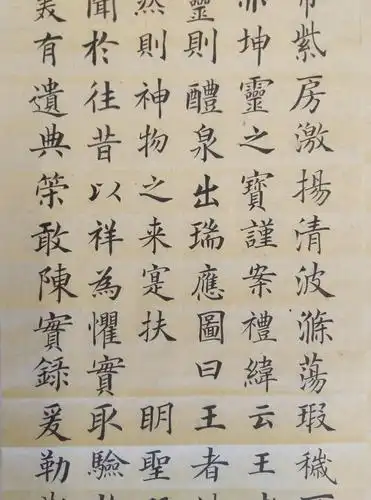 紫房激揚清波滌蕩瑕穢
亦坤靈之寶謹案禮緯云王
靈則醴泉出瑞應圖曰王者
然則神物之来寔扶 明聖
聞於往昔以祥為懼實取驗
美有遺典策敢陳實録爰勒